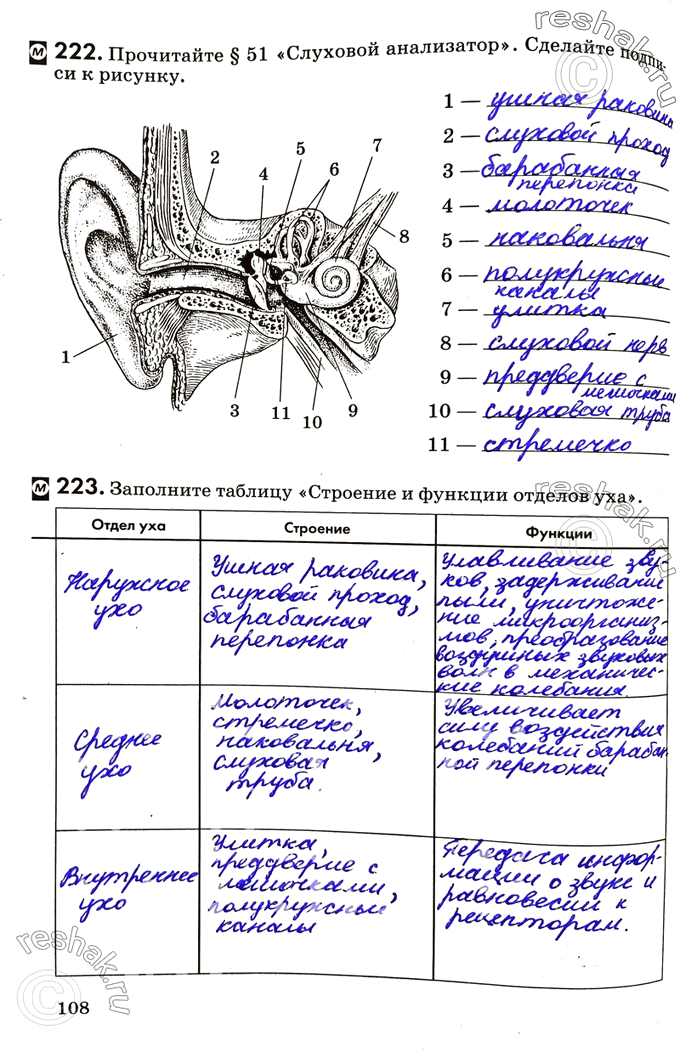 М 222. Прочитайте § 51 «Слуховой анализатор». Сделайте подпи-
си к рисунку.
1 — ушная раковина
2 — слуховой проход
3 — барабанная
перепонка
4 — молоточек
5 — наковальня
6 — полукружные
каналы
7 — улитка
8 — слуховой нерв
9 — преддверие с
мешочками
10 — слуховая труба
11 — стремечко
2
4
5
6
7
8
1
3
11
10
9
М 223. Заполните таблицу «Строение и функции отделов уха».
Отдел уха
Строение
Функции
Наружное
ухо
Ушная раковина,
слуховой проход,
барабанная
перепонка
Улавливание зву-
ков, задерживание
пыли, уничтоже-
ние микроорганиз-
мов, преобразование
воздушных звуковых
волн в механичес-
кие колебания
Среднее
ухо
Молоточек,
стремечко,
наковальня,
слуховая
труба.
Увеличивает
силу воздействия
колебаний барабан-
ной перепонки
Внутреннее
ухо
Улитка,
преддверие с
мешочками,
полукружные
каналы
Передача инфор-
мации о звуке и
равновесии к
рецепторам.
108
reshak.ru
reshak.ru
reshak.ru
reshak.ru